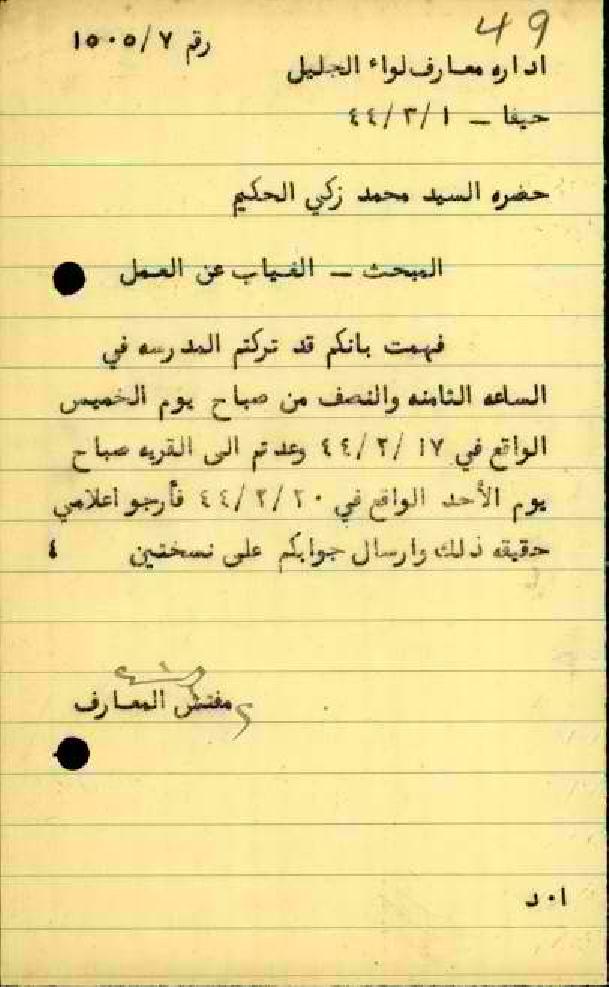 49
رقم ١٥٠٥/٧
اداره معارف لواء الجليل
حيفا – ٤٤/٣/١
حضره السيد محمد زكي الحكيم
المبحث – الغياب عن العمل
فهمت بانكم قد تركتم المدرسه في
الساعه الثامنه والنصف من صباح يوم الخميس
الواقع في ٤٤/٢/١٧ وعدتم الى القريه صباح
يوم الأحد الواقع في ٤٤/٢/٢٠ فأرجو اعلامي
حقيقه ذلك وارسال جوابكم على نسختين ٤
مفتش المعارف
ا٠د